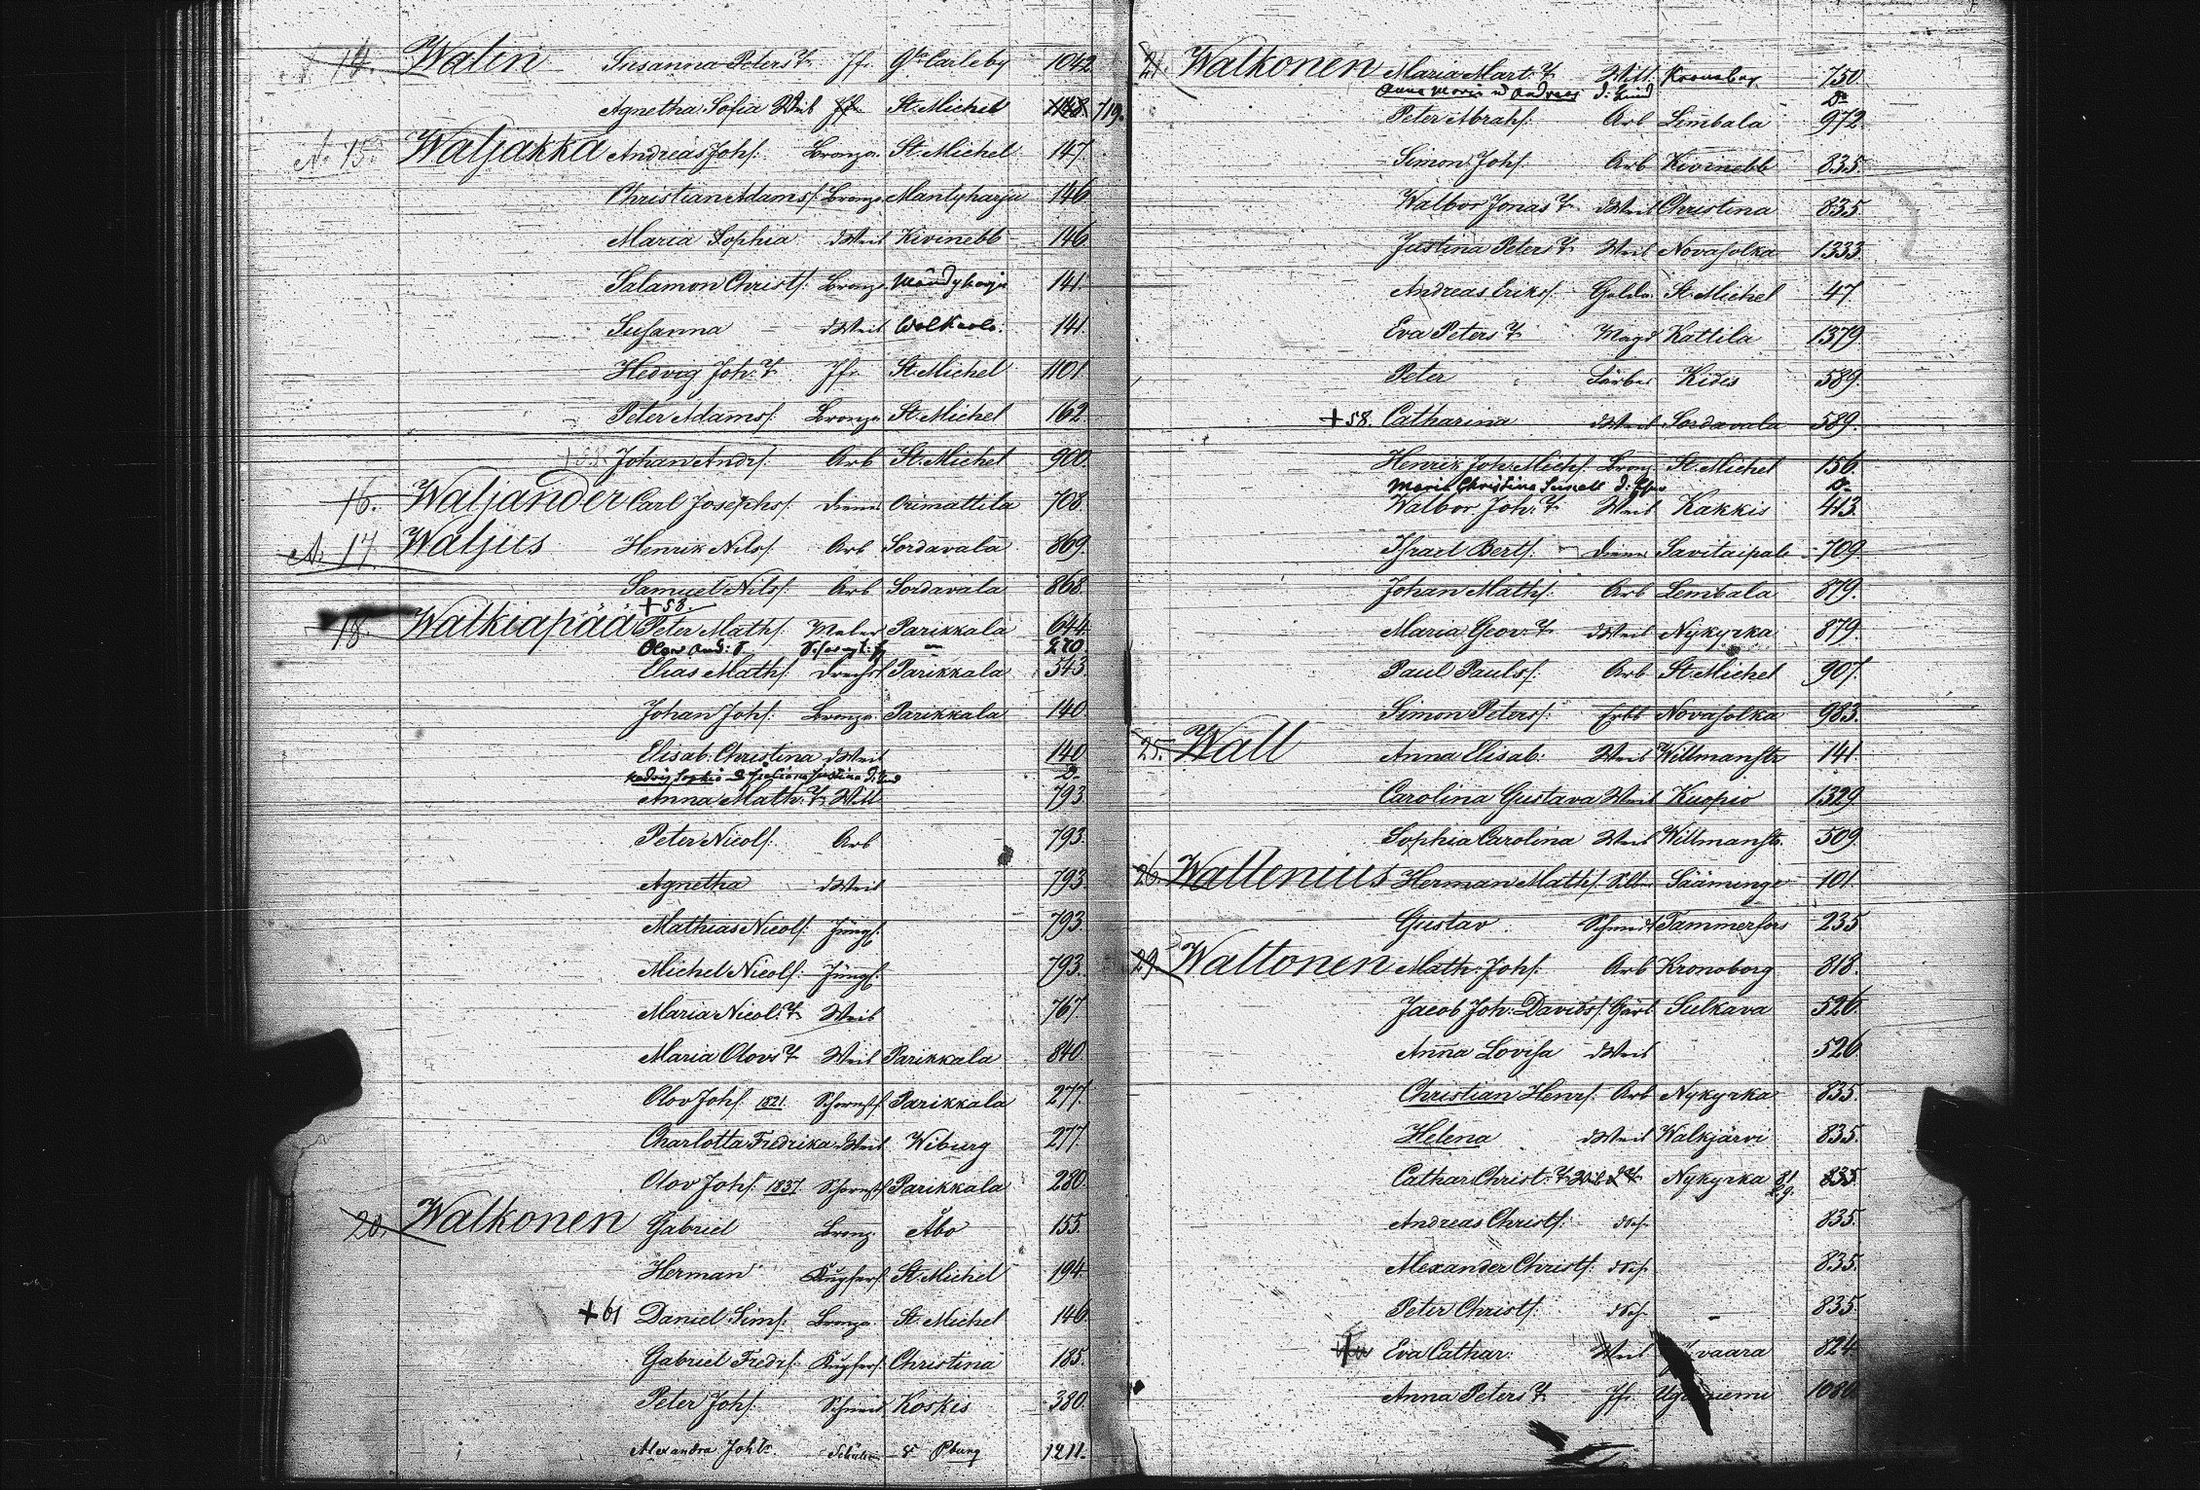 A. 14. Walin Susanna Peters T. Jfr. Gla Carleby 1042
Agnetha Sofia Weib Jfr St. Michel 1148. 719.
A. 15. Waljakka Andreas Johs. Bronze. St. Michel 147.
Christian Adams. Bronze Mantyharju 146.
Maria Sophia dWeib Kivinebb 146.
Salamon Christs. Bronze. Mändyharju 141.
Susanna dWeib Walkeala. 141.
Hedvig Joh. T. Jfr. St. Michel 1101.
Peter Adams. Bronze St. Michel 162.
Johan Andrs. Arb St. Michel 900.
16. Waljander Carl Josephs. diener Orimattila 708.
A. 17. Waljus Henrik Nils. Arb Sordavala 869.
Samuel Nils. Arb Sordavala 868.
+ 58.
18. Walkiapää Peter Maths. Maler Parikkala 644.
Olov And. S. 270
Elias Maths. Drechsl Parikkala 543.
Johan Johs. Bronze. Parikkala 140.
Elisab. Christina dWeib 140
Hedvig Sophia & Justina
Anna Math. T. Witt 793.
Peter Nicols. Arb 793.
Agnetha dWeib 793.
Mathias Nicols. Jüngl. 793.
Michel Nicols. Jüngl. 793.
Maria Nicol. T. Weib 767.
Maria Olovs T. Weib Parikkala 840.
Olov Johs. 1821. Schornstf Parikkala 277.
Charlotta Fredrika dWeib Wiburg 277.
Olov Johs. 1837. Schornstf Parikkala 280.
20. Walkonen Gabriel Bronz. Åbo 155.
Herman Kupfers. St. Michel 194.
+ 61 Daniel Sims. Bronze. St. Michel 146.
Gabriel Fredrs. Kupfers. Christina 185.
Peter Johs. Schneid. Koskis 380.
Alexandra Joh Tr. Schüler St Pburg 1211.
21. Walkonen Maria Mart. T. Witt. Kronoborg. 750.
Anna Maria u Andreas d. Kind Do
Peter Abrahs. Arb Lembala 972.
Simon Johs. Arb Kivinebb 835.
Walbor Jonas T. dWeib Christina 835
Justina Peters T. Weib Novasolka 1333.
Andreas Eriks. Golda. St. Michel 47.
Eva Peters T. Magd Kattila 1379.
Peter Färber Kides 589.
+ 58. Catharina dWeib Sordavala 589.
Henrik Joh. Michs. Bronz. St. Michel 156.
Maria Christina d. Do
Walbor Joh. T. Weib Kakkis 413.
Israel Berts. diener Savitaipale 709.
Johan Maths. Arb Lembala 879.
Maria Geor. T. dWeib Nykyrka 879.
Paul Pauls. Arb St. Michel 907.
Simon Peters. Erbb Novasolka 983.
25. Wall Anna Elisab. Weib Willmanstr 141.
Carolina Gustava Weib Kuopio 1329.
Sophia Carolina Weib Willmanstr. 509.
26. Wallenius Herman Maths. Silber Sääminge 101.
Gustav Schmidt Tammerfors 235
29. Waltonen Math. Johs. Arb Kronoborg 818.
Jacob Joh. Davids. Gärt Sulkava 526.
Anna Lovisa dWeib 526.
Christian Henrs. Arb Nykyrka 835.
Helena dWeib Walkjärvi 835.
Cathar. Christ. T. d T. Nykyrka 81 29. 835.
Andreas Christs. dSoh. 835.
Alexander Christs. dSoh. 835.
Peter Christs. dSoh. 835.
Eva Cathar. Weib vaara 824.
Anna Peters T. Jfr. niemi 1086.